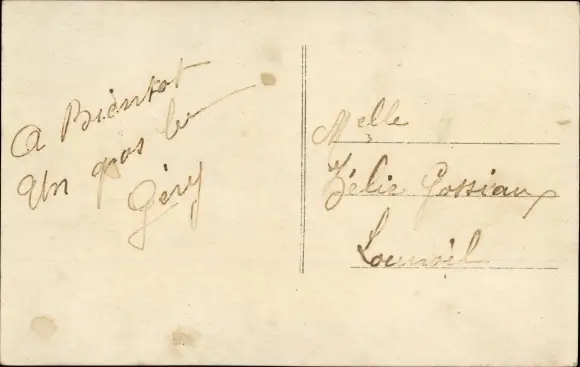 A Bientot
Un gros be
Géry
Melle
Zélie Gossiaux
Louvroil